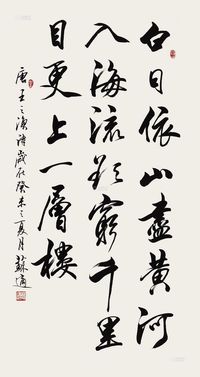 白日依山盡黄河
入海流欲窮千里
目更上一層樓
唐王之渙詩歲在癸未之夏月蘇